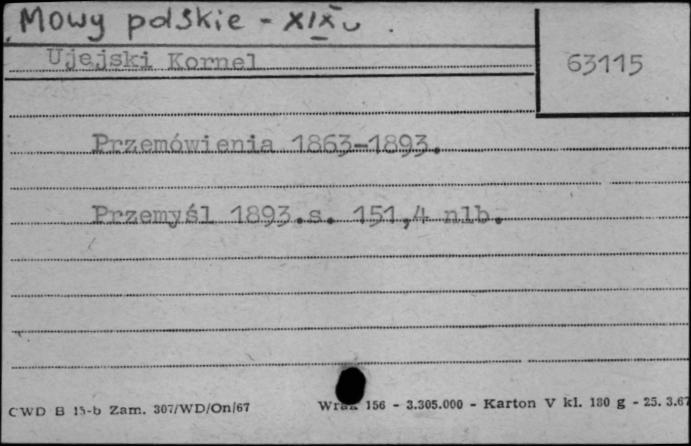 Mowy polskie - XIX w.
Ujejski Kornel
63115
Przemówienia 1863-1893.
Przemyśl 1893.s. 151,4 nlb.
CWD B 15-b Zam. 307/WD/On/67 156 - 3.305.000 - Karton V kl. 180 g - 25. 3.67